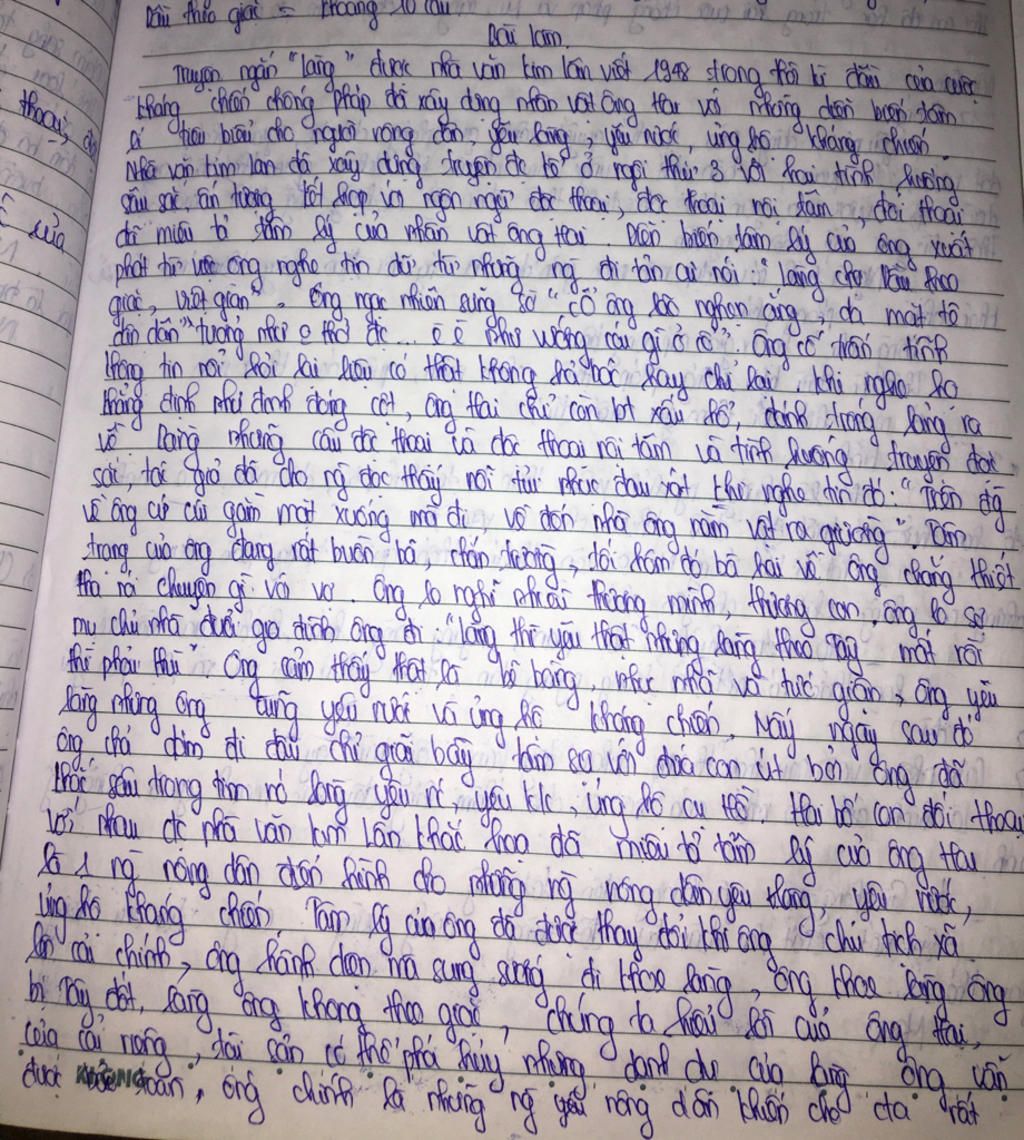 Dẫn theo giặc = khoảng 10 câu
Bài làm
Truyện ngắn "Làng" được nhà văn Kim Lân viết 1948 trong thời kì đầu của cuộc
kháng chiến chống Pháp đã xây dựng nhân vật ông Hai với những diễn biến tâm
lí tiêu biểu cho người nông dân, yêu làng, yêu nước, ủng hộ kháng chiến.
Nhà văn Kim Lân đã xây dựng truyện đc kể ở ngôi thứ 3 với hai tình huống
sâu sắc ấn tượng kết hợp với ngôn ngữ độc thoại, độc thoại nội tâm, đối thoại
đã miêu tả tâm lý của nhân vật ông Hai. Diễn biến tâm lý của ông xuất
phát từ việc ông nghe tin dữ từ những ng đi tản cư nói: "làng chợ Dầu theo
giặc, việt gian". Ông ngạc nhiên sững sờ "cổ ông lão nghẹn ắng, da mặt tê
dân dân" tưởng như o thở đc... è è như vướng cái gì ở cổ". Ông cố trấn tĩnh
không tin nổi hỏi lại liệu có thật không là bác hay chỉ lại, khi nghe họ
khẳng định như đinh đóng cột, ông Hai chỉ còn bt xấu hổ, đánh trống lảng ra
về. Bằng những câu độc thoại và độc thoại nội tâm và tình huống truyện đặc
sắc, tác giả đã cho ng đọc thấy nỗi tủi nhục đau xót khi nghe tin đó: "Trên đg
về ông cứ cúi gằm mặt xuống mà đi về đến nhà ông nằm vật ra giường". Tâm
trạng của ông đang rất buồn bã, chán trường, tối hôm đó bà Hai về ông chẳng thiết
tha nói chuyện gì với vợ. Ông lo nghĩ nhiều thương mình thương con, ông lo sợ
mụ chủ nhà đuổi gia đình ông đi "làng thì yêu thật nhưng làng theo Tây mất rồi
thì phải thù" Ông cảm thấy thật là bẽ bàng, nhục nhã và tức giận, ông yêu
làng nhưng ông cũng yêu nước và ủng hộ kháng chiến. Mấy ngày sau đó
ông chả dám đi đâu chỉ giãi bày tâm sự với đứa con út bởi ông đã
khắc sâu trong tim nó lòng yêu nc yêu k/c, ủng hộ cụ Hồ. Hai bố con đối thoại
với nhau đc nhà văn Kim Lân khắc họa đã miêu tả tâm lý của ông Hai
là 1 ng nông dân điển hình cho những ng nông dân yêu làng, yêu nước,
ủng hộ kháng chiến. Tâm lý của ông đã được thay đổi khi ông chủ tịch xã
lên cải chính, ông hãnh diện mà sung sướng đi khoe làng, ông khoe làng ông
bị Tây đốt, làng ông không theo giặc, chúng ta hiểu lời của ông Hai,
của cải ruộng, tài sản có thể phá hủy nhưng danh dự của làng ông vẫn
được toàn, ông chính là những ng yêu nông dân khiến cho cta rất